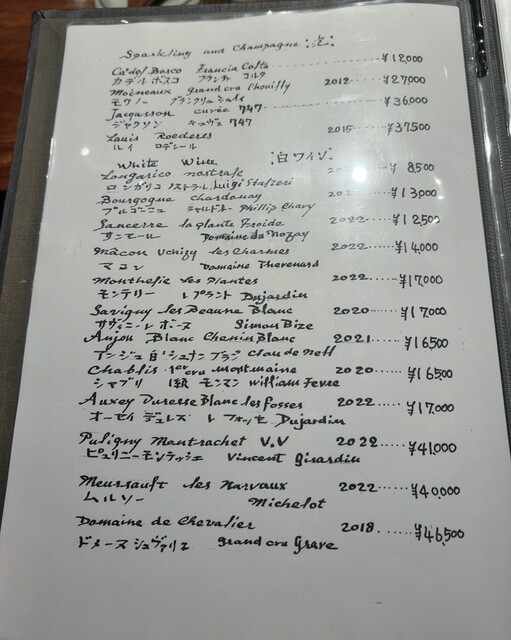 Sparkling and Champagne :泡:
Ca'del Bosco Francia Colta ¥12,000
カデル ボスコ フランチャ コルタ
Moineaux grand cru Chouilly 2012 ¥27,000
モワノー グランクリュ シュイイ
Jacqasson cuvée 747 ¥36,000
ジャクソン キュヴェ 747
Louis Roederes 2015 ¥37,500
ルイ ロデレール
White Wine :白ワイン:
Longarico nostrale ¥8,500
ロンガリコ ノストラール Luigi
Bourgogne chardonay ¥13,000
ブルゴーニュ シャルドネー Phillip Chavy
Sancerre la plante Froide 2022 ¥12,500
サンセール Domaine du Nozay
Mâcon Uchizy les Charmes 2022 ¥14,000
マコン Domaine Thevenard
Monthelie les Plantes 2022 ¥17,000
モンテリー レプラント Dujardin
Savigny les Beaune Blanc 2020 ¥17,000
サヴィニーレ ボーヌ Simon Bize
Anjou Blanc Chenin Blanc 2021 ¥16,500
アンジュ 白 シュナン ブラン Claude Neff
Chablis 1er cru montmaine 2020 ¥16,500
シャブリ 1級 モンマン William Fevre
Auxey Duresse Blanc les fosses 2022 ¥17,000
オーセイ デュレス レ フォッセ Dujardin
Puligny Montrachet V.V 2022 ¥41,000
ピュリニーモンラッシェ Vincent Girardin
Meussault les Narvaux 2022 ¥40,000
ムルソー Michelot
Domaine de Chevalier 2018 ¥46,500
ドメーヌ シュヴァリエ Grand cru Grave